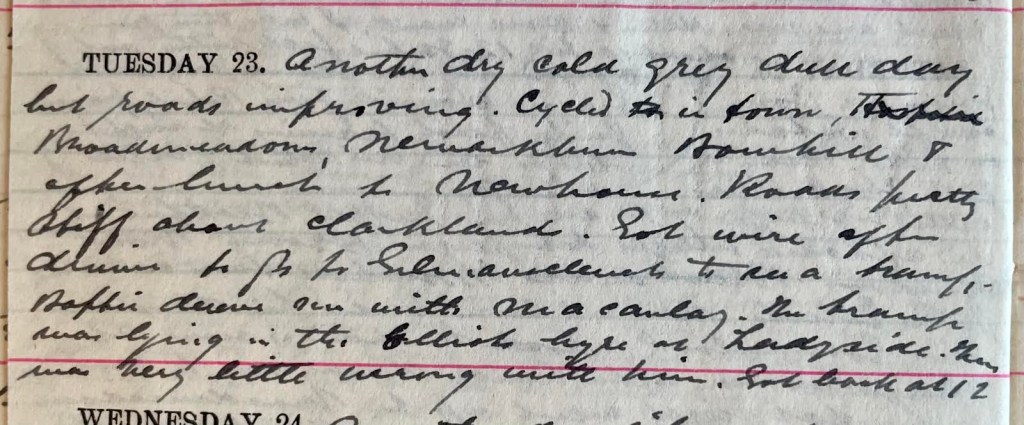 TUESDAY 23. Another dry cold grey dull day
but roads improving. Cycled in town,
Broadmeadows, Newarkburn Bowhill &
after lunch to Newhouse. Roads pretty
stiff about Clarklands. Got wire after
dinner to go to Gilmanscleuch to see a tramp.
drove me with Macaulay. The tramp
was lying in the byre at Ladyside. There
was very little wrong with him. Got back at 12
WEDNESDAY 24.